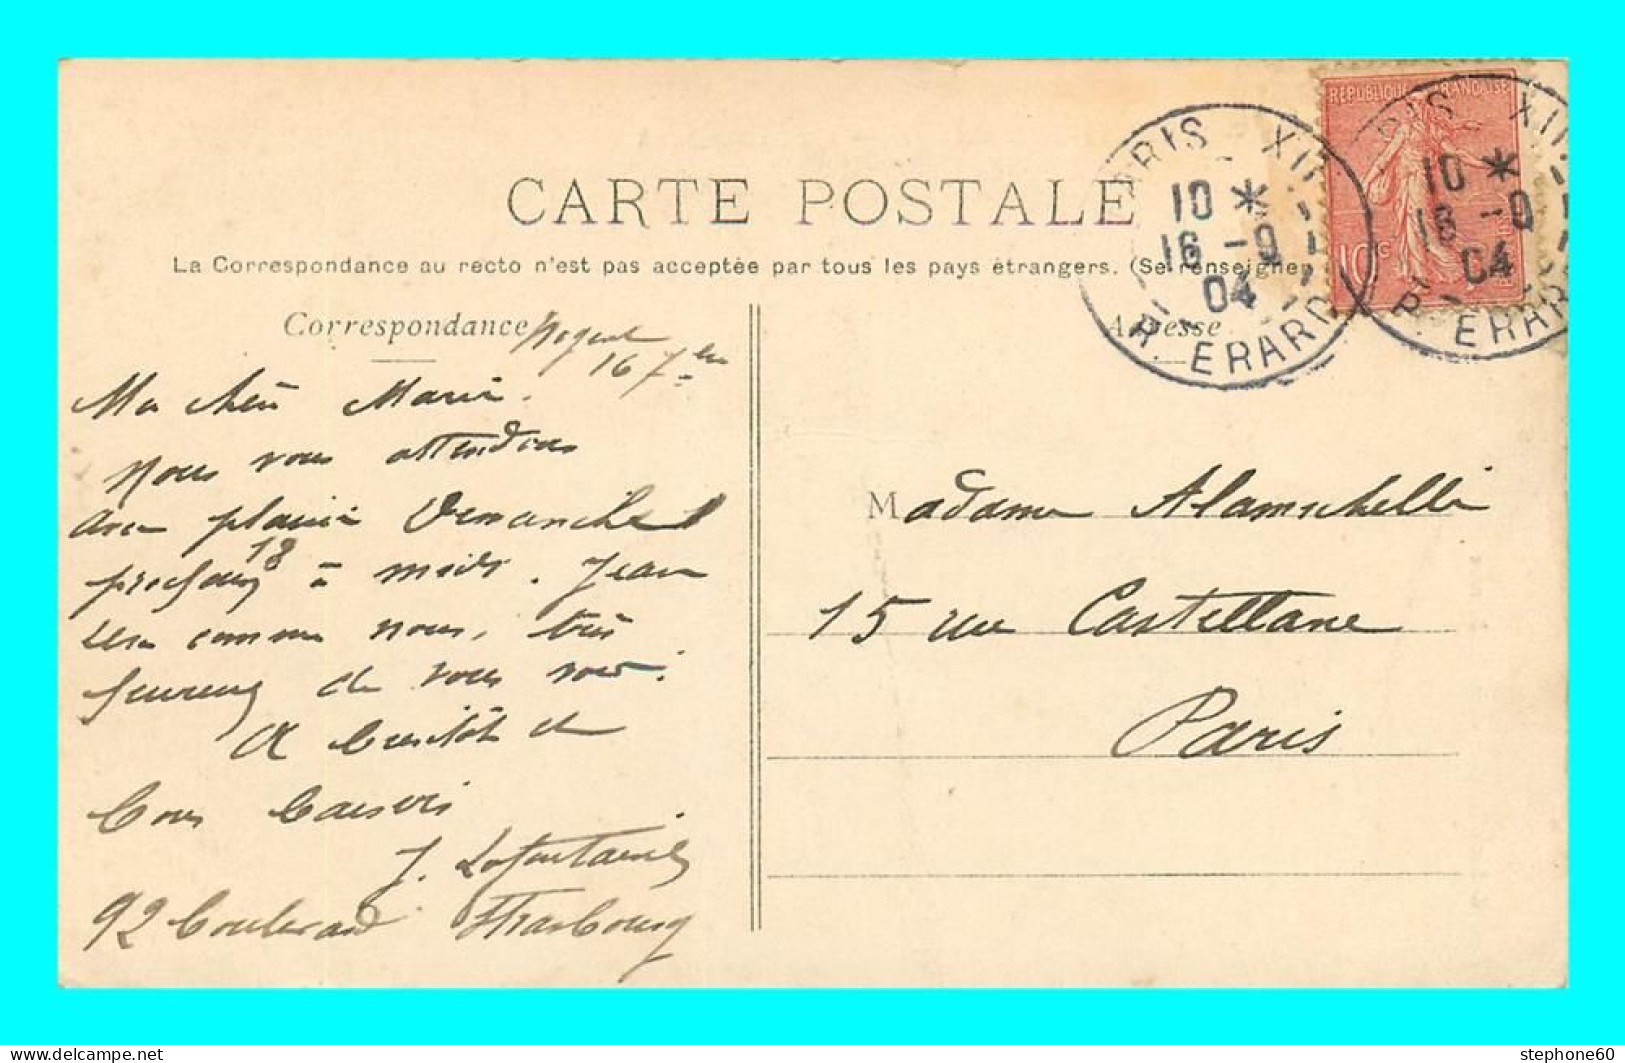 CARTE POSTALE
La Correspondance au recto n'est pas acceptée par tous les pays étrangers. (Se renseigne
Correspondance
Nogent
16 7bre
Adresse
Ma chère Marie.
Nous vous attendons
avec plaisir Dimanche
prochain 18 à midi. Jean
sera comme nous, très
heureux de vous voir.
A bientôt de
bons baisers
J. Lafontaine
92 boulevard Strasbourg
Madame Alamichelle
15 rue Castellane
Paris
REPUBLIQUE FRANÇAISE
10c
PARIS XII
10 *
16 -9
04
R. ERARD
PARIS XII
10 *
16 -9
04
R. ERARD
stephone60